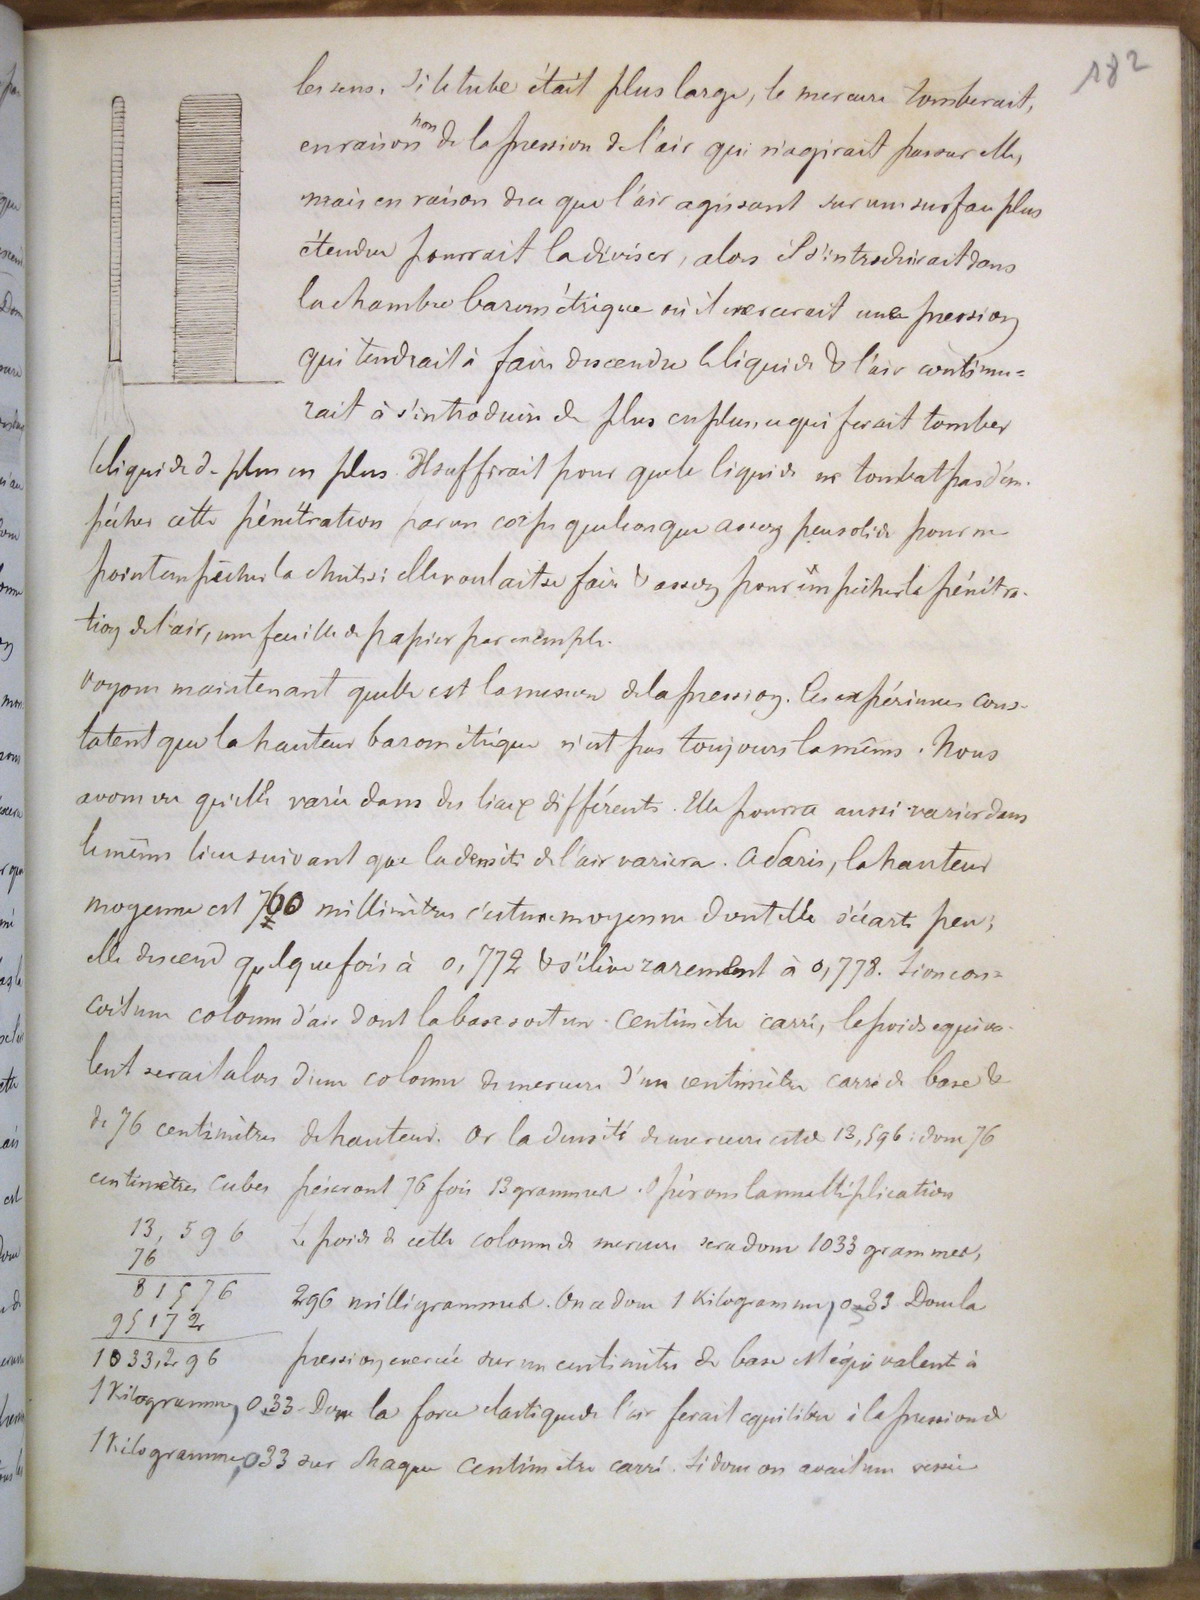 182
les sens. Si le tube était plus large, le mercure tomberait,
en raison non de la pression de l'air qui n'agirait pas sur elle,
mais en raison de ce que l'air agissant sur une surface plus
étendue pourrait la diviser, alors il s'introduirait dans
la chambre barométrique où il exercerait une pression
qui tendrait à faire descendre le liquide & l'air continue=
rait à s'introduire de plus en plus, ce qui ferait tomber
le liquide de plus en plus. Il suffirait pour que le liquide ne tombat pas d'em-
pêcher cette pénétration par un corps quelconque assez peu solide pour ne
point empêcher la chute si elle voulait se faire & assez pour empêcher la pénétra-
tion de l'air, une feuille de papier par exemple.
Voyons maintenant quelle est la mesure de la pression. Les expériences cons-
tatent que la hauteur barométrique n'est pas toujours la même. Nous
avons vu qu'elle varie dans des lieux différents. Elle pourra aussi varier dans
le même lieu suivant que la densité de l'air variera. A Paris, la hauteur
moyenne est 760 millimètres c'est une moyenne dont elle s'écarte peu;
elle descend quelquefois à 0,772 & s'élève rarement à 0,778. Si on con=
çoit une colonne d'air dont la base soit un centimètre carré, le poids équiva-
lent serait alors d'une colonne de mercure d'un centimètre carré de base &
de 76 centimètres de hauteur. Or la densité de mercure est de 13,596: donc 76
centimètres cubes péseront 76 fois 13 grammes. Opérons la multiplication
13,596
76
81576
95172
1033,296
Le poids de cette colonne de mercure sera donc 1033 grammes,
296 milligrammes. On a donc 1 Kilogramme, 033. Donc la
pression exercée sur un centimètre de base est équivalent à
1 Kilogramme, 033. Donc la force élastique de l'air ferait équilibre à la pression de
1 Kilogramme, 033 sur chaque centimètre carré. Si donc on avait une vessie